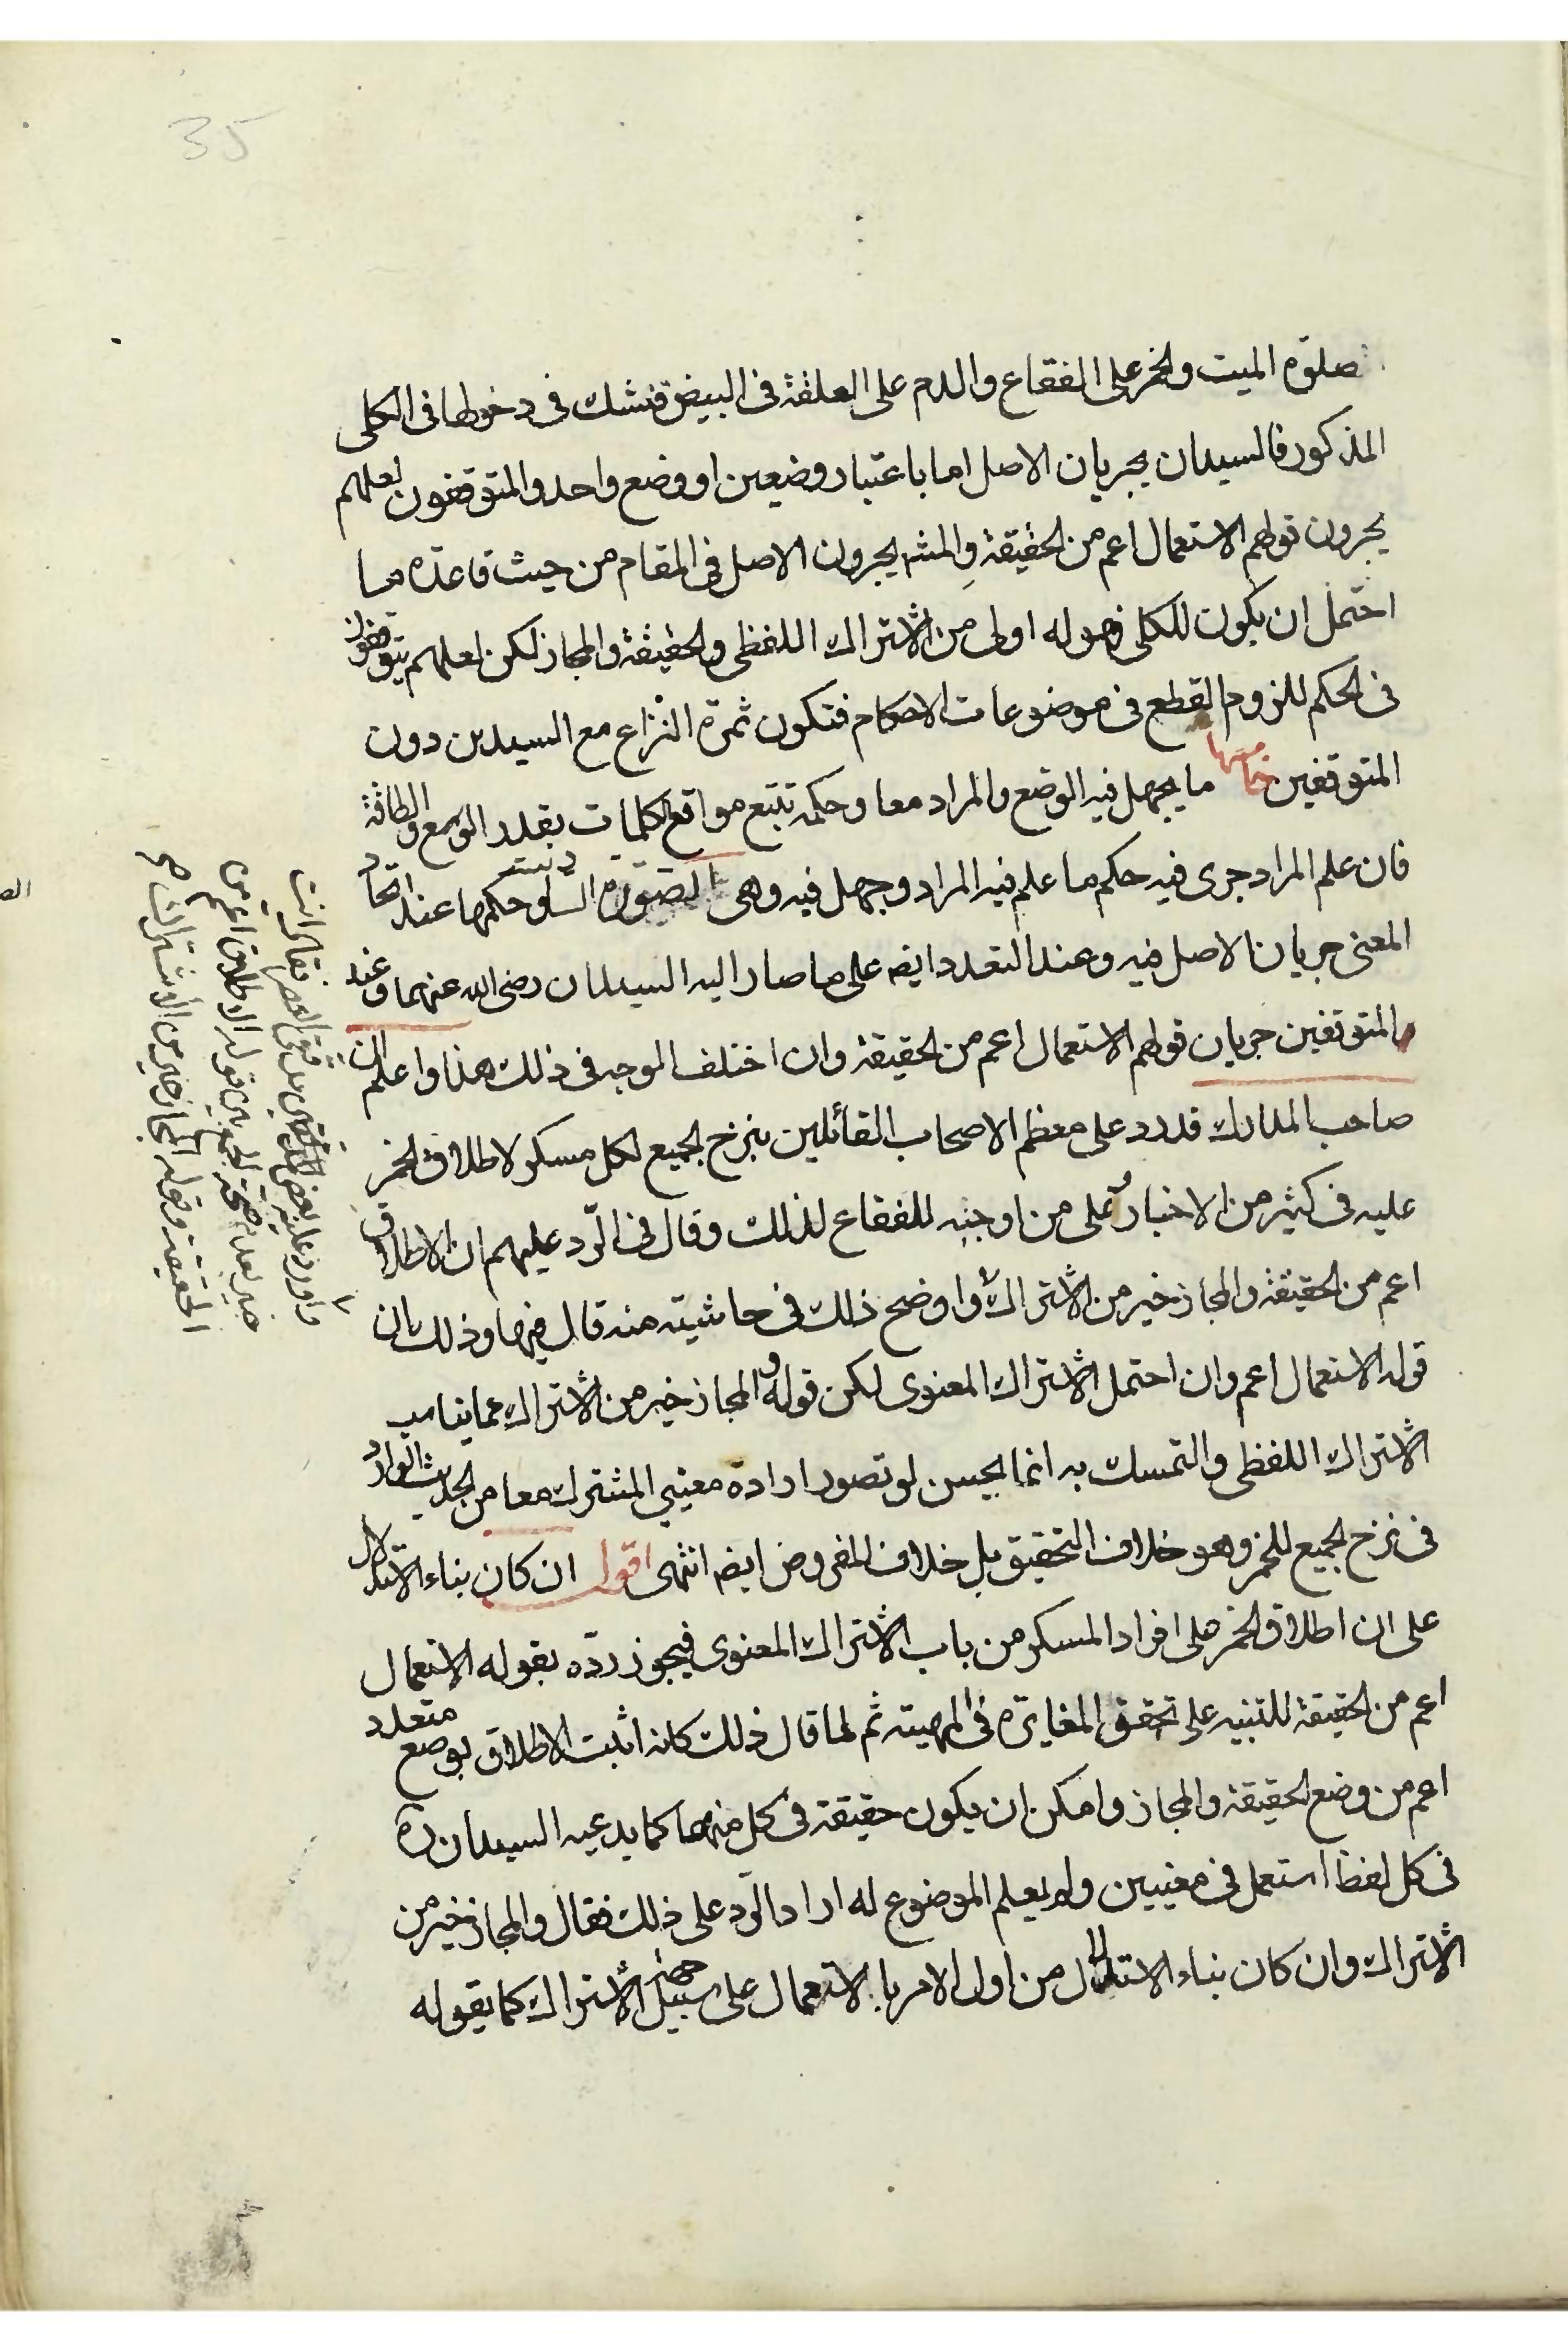 35
صلوة الميت والخمر على الفقاع والدم على العلقة فى البيض فنشك فى دخولها فى الكلى
المذكور فالسيدان يجريان الاصل اما باعتبار وضعين او وضع واحد والمتوقفون لعلهم
يجرون قولهم الاستعمال اعم من الحقيقة والمشه يجرون الاصل فى المقام من حيث قاعدة ما
احتمل ان يكون للكلى فهو له اولى من الاشتراك اللفظى والحقيقة والمجاز لكن لعلهم يتوقفون
فى الحكم للزوم القطع فى موضوعات الاحكام فتكون ثمرة النزاع مع السيدين دون
المتوقفين خامسها ما يجهل فيه الوضع والمراد معا وحكمه تتبع مواقع الكلمات بقدر الوسع والطاقة
فان علم المراد جرى فيه حكم ما علم فيه المراد وجهل فيه وهى الصورة وحكمها عند اتحاد
المعنى جريان الاصل فيه وعند التعدد ايضه على ما صار اليه السيدان رضى الله عنهما وعند
المتوقفين جريان قولهم الاستعمال اعم من الحقيقة وان اختلف الوجه فى ذلك هذا واعلم ان
صاحب المدارك قد رد على معظم الاصحاب القائلين بنزح الجميع لكل مسكر لاطلاق الخمر
عليه فى كثير من الاخبار وعلى من اوجبه للفقاع لذلك وقال فى الرّد عليهم ان الاطلاق
اعم من الحقيقة والمجاز خير من الاشتراك واوضح ذلك فى حاشيته منه قال فيها وذلك بان
قوله الاستعمال اعم وان احتمل الاشتراك المعنوى لكن قوله والمجاز خير من الاشتراك مما يناسب
الاشتراك اللفظى والتمسك به انما يحسن لو تصور ارادة معنيي المشترك معا من الحديث الوارد
فى نزح الجميع للخمر وهو خلاف التحقيق بل خلاف المفروض ايضه انتهى اقول ان كان بناء الاستدلال
على ان اطلاق الخمر على افراد المسكر من باب الاشتراك المعنوى فيجوز ردّه بقوله الاستعمال
اعم من الحقيقة للتنبيه على تحقق المغايرة فى المهية ثم لما قال ذلك كانه اثبت الاطلاق بوضع متعدد
اعم من وضع الحقيقة والمجاز وامكن ان يكون حقيقة فى كل منهما كما يدعيه السيدان ره
فى كل لفظ استعمل فى معنيين ولم يعلم الموضوع له اراد الرّد على ذلك فقال والمجاز خير من
الاشتراك وان كان بناء الاستدلال من اول الامر بالاستعمال على سبيل الاشتراك كما يقوله
واورد عليه بعض
خبير بعدم صحة الجمع بين قوله الاطلاق اعم من
الحقيقة وقوله المجاز خير من الاشتراك